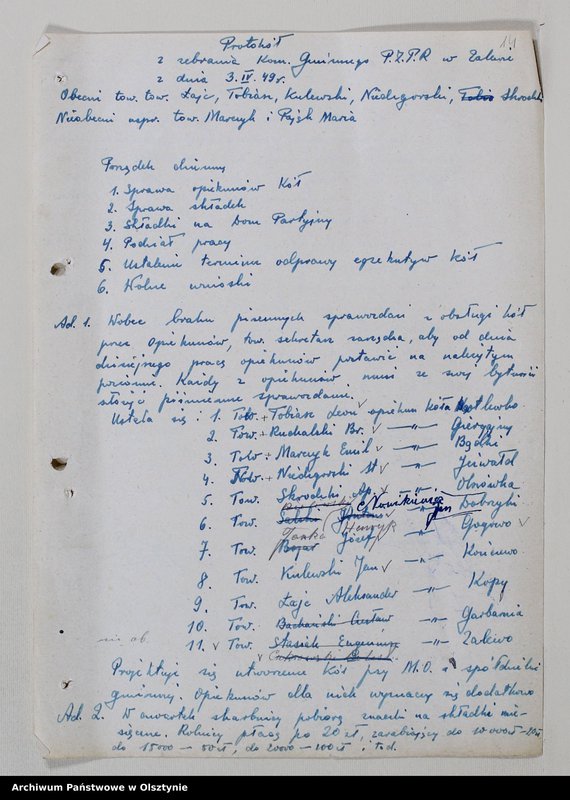 14
Protokół
z zebrania Kom. Gminnego P.Z.P.R w Zalewie
z dnia 3.IV.49r.
Obecni tow. tow. Zając, Tobiasz, Kulewski, Niedzgorski, Skrodzki
Nieobecni uspr. tow. Marczyk i Pająk Maria
Porządek dzienny
1. Sprawa opiekunów Kół
2. Sprawa składek
3. Składki na Dom Partyjny
4. Podział pracy
5. Ustalenie terminu odprawy egzekutyw kół
6. Wolne wnioski
Ad. 1. Wobec braku pisemnych sprawozdań z obsługi kół
przez opiekunów, tow. sekretarz zarządza, aby od dnia
dzisiejszego pracę opiekunów postawić na należytym
poziomie. Każdy z opiekunów musi ze swej bytności
złożyć piśmienne sprawozdanie.
Ustala się: 1. Tow. Tobiasz Leon opiekun koła
2. Tow. Ruchalski Br. —"— Gierzyny
3. Tow. Marczyk Emil —"— Bądki
4. Tow. Niedzgorski St —"— Jeziwałd
5. Tow. Skrodzki Ap. —"— Dłrówka
6. Tow. Nowikiewicz Jan —"— Dobrzyki
7. Tow. Janka Henryk Józef —"— Gogowo
8. Tow. Kulewski Jan —"— Koniewo
9. Tow. Zając Aleksander —"— Kopy
10. Tow. Bachański Gustaw —"— Garbarnia
11. Tow. Stasiek Eugeniusz —"— Zalewo
Projektuje się utworzenie Kół przy M.O. i spółdzielni
gminnej. Opiekunów dla nich wyznaczy się dodatkowo
Ad. 2. W czwartek skarbnicy pobiorą znaczki na składki mie-
sięczne. Rolnicy płacą po 20 zł, zarabiający do 10000zł - 20zł
do 15000 — 50 zł, do 20000 — 100 zł i t.d.
Archiwum Państwowe w Olsztynie